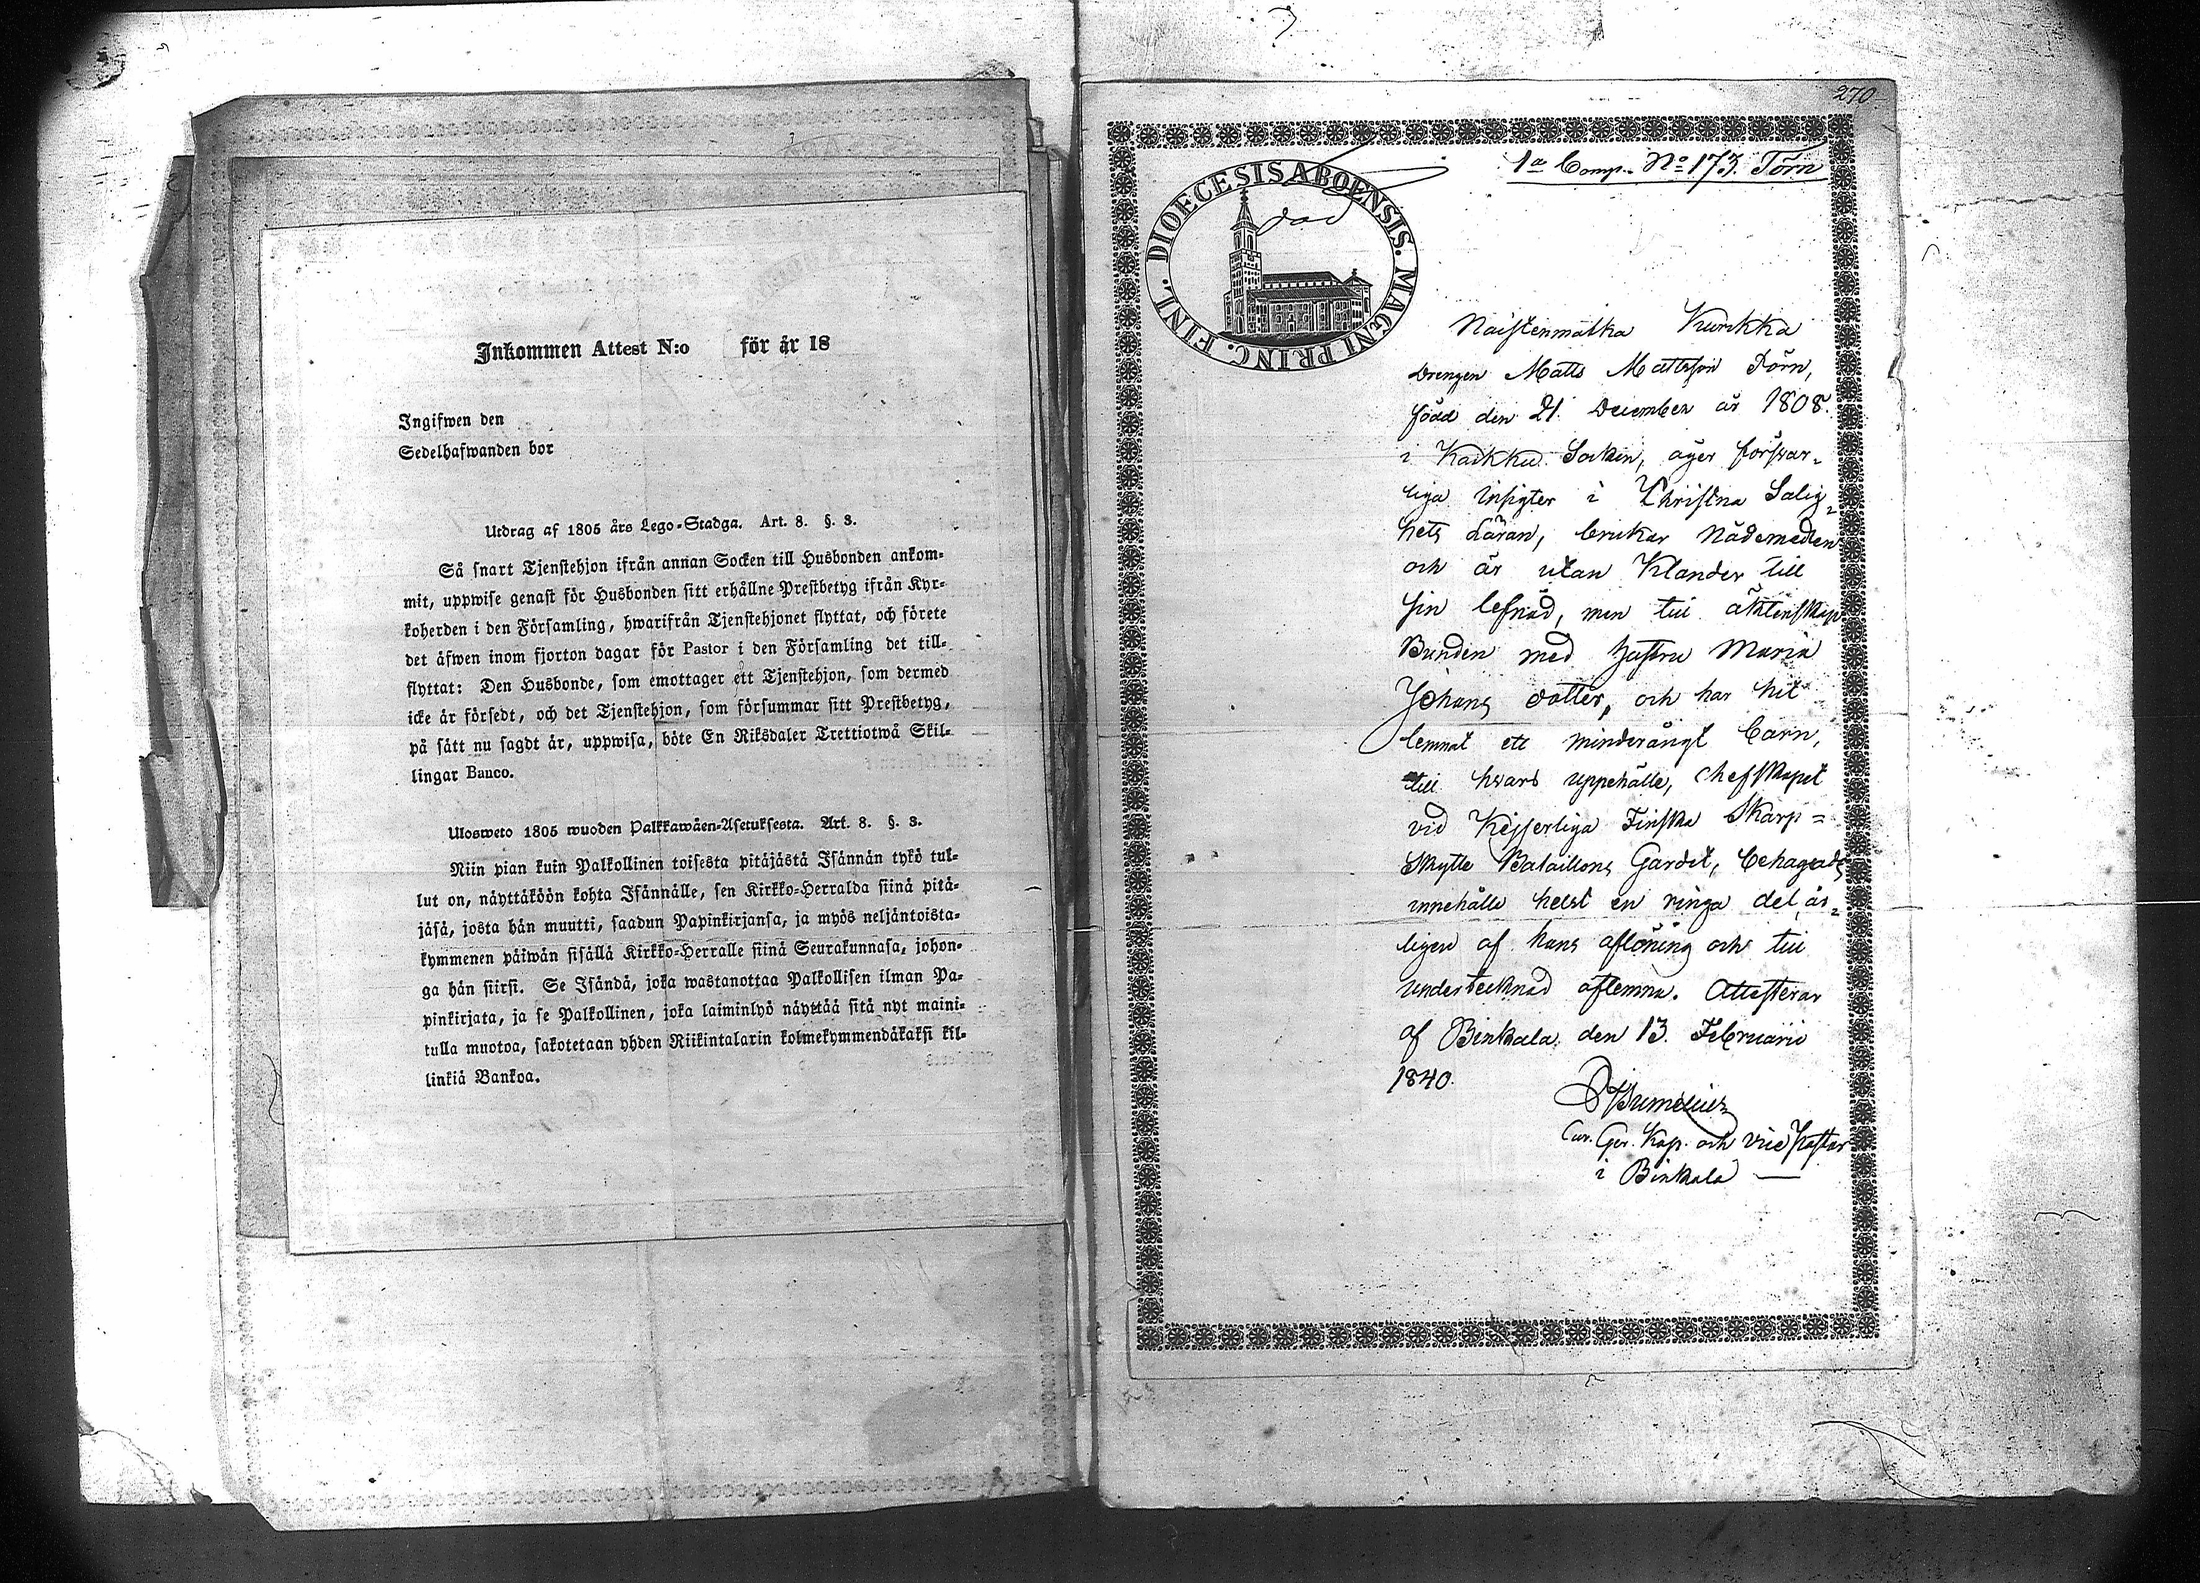 Inkommen Attest N:o för år 18
Ingifwen den
Sedelhafwanden bor
Utdrag af 1805 års Lego-Stadga. Art. 8. §. 3.
Så snart Tjenstehjon ifrån annan Socken till Husbonden ankom-
mit, uppwise genast för Husbonden sitt erhållne Prestbetyg ifrån Kyr-
koherden i den Församling, hwarifrån Tjenstehjonet flyttat, och förete
det äfwen inom fjorton dagar för Pastor i den Församling det till-
flyttat: Den Husbonde, som emottager ett Tjenstehjon, som dermed
icke är försedt, och det Tjenstehjon, som försummar sitt Prestbetyg,
på sätt nu sagdt är, uppwisa, böte En Riksdaler Trettiotwå Skil-
lingar Banco.
Ulosweto 1805 wuoden Palkkawäen-Asetuksesta. Art. 8. §. 3.
Niin pian kuin Palkollinen toisesta pitäjästä Isännän tykö tul-
lut on, näyttäköön kohta Isännälle, sen Kirkko-Herralda siinä pitä-
jäsä, josta hän muutti, saadun Papinkirjansa, ja myös neljäntoista-
kymmenen päiwän sisällä Kirkko-Herralle siinä Seurakunnasa, johon-
ga hän siirsi. Se Isändä, joka wastanottaa Palkollisen ilman Pa-
pinkirjata, ja se Palkollinen, joka laiminlyö näyttää sitä nyt maini-
tulla muotoa, sakotetaan yhden Riikintalarin kolmekymmendäkaksi kil-
linkiä Bankoa.
270
1a Comp. No 173. Törn
DIOECESIS ABOENSIS. MAGNI PRINC. FINL.
död
Naistenmatka Kurikka
Drengen Matts Mattsson Törn,
född den 21. December år 1808.
i Karkku Socken, äger försvar-
liga insigter i Christna Salig-
hets Läran, brukar Nådemedlen
och är utan Klander till
sin lefnad, men till äktenskap
Bunden med hustru Maria
Johans dotter, och har hit
lemnat ett minderångt barn,
till hvars uppehälle, chefskapet
vid Kejserliga Finska Skarp=
Skytte Bataillons Gardet, behagade
innehålla helst en ringa del år-
ligen af hans aflöning och till
undertecknad aflemna. Attesterar
af Birkkala den 13. Februarii
1840.
Cur. Ger. Kap. och vice Pastor
i Birkkala